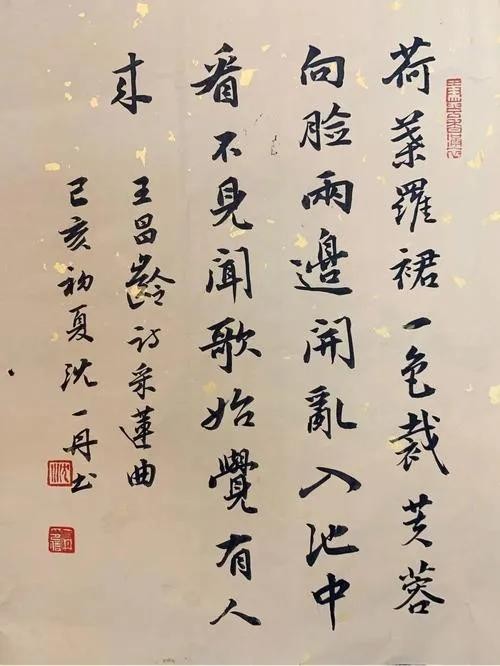 荷葉羅裙一色裁芙蓉
向臉兩邊開亂入池中
看不見聞歌始覺有人
來
王昌齡詩采蓮曲
己亥初夏沈一丹书